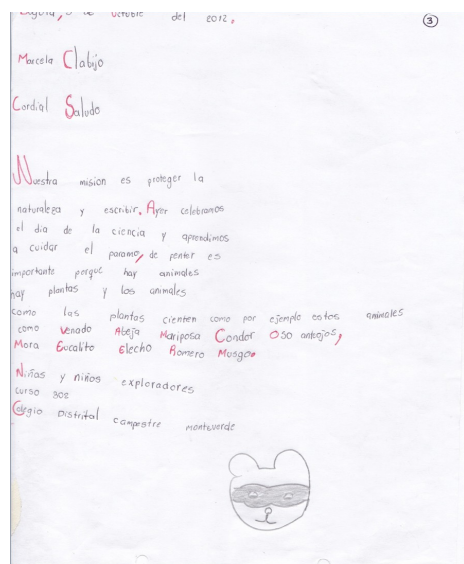 octubre del 2012.
3
Marcela Clabijo
Cordial Saludo
Nuestra mision es proteger la
naturaleza y escribir. Ayer celebramos
el dia de la ciencia y aprendimos
a cuidar el paramo, de penter es
importante porque hay animales
hay plantas y los animales
como las plantas cienten como por ejemplo estos animales
como venado Abeja Mariposa Condor Oso anteojos,
Mora Eucalito Elecho Romero Musgo.
Niñas y niños exploradores
curso 302
Colegio Distrital campestre monteverde